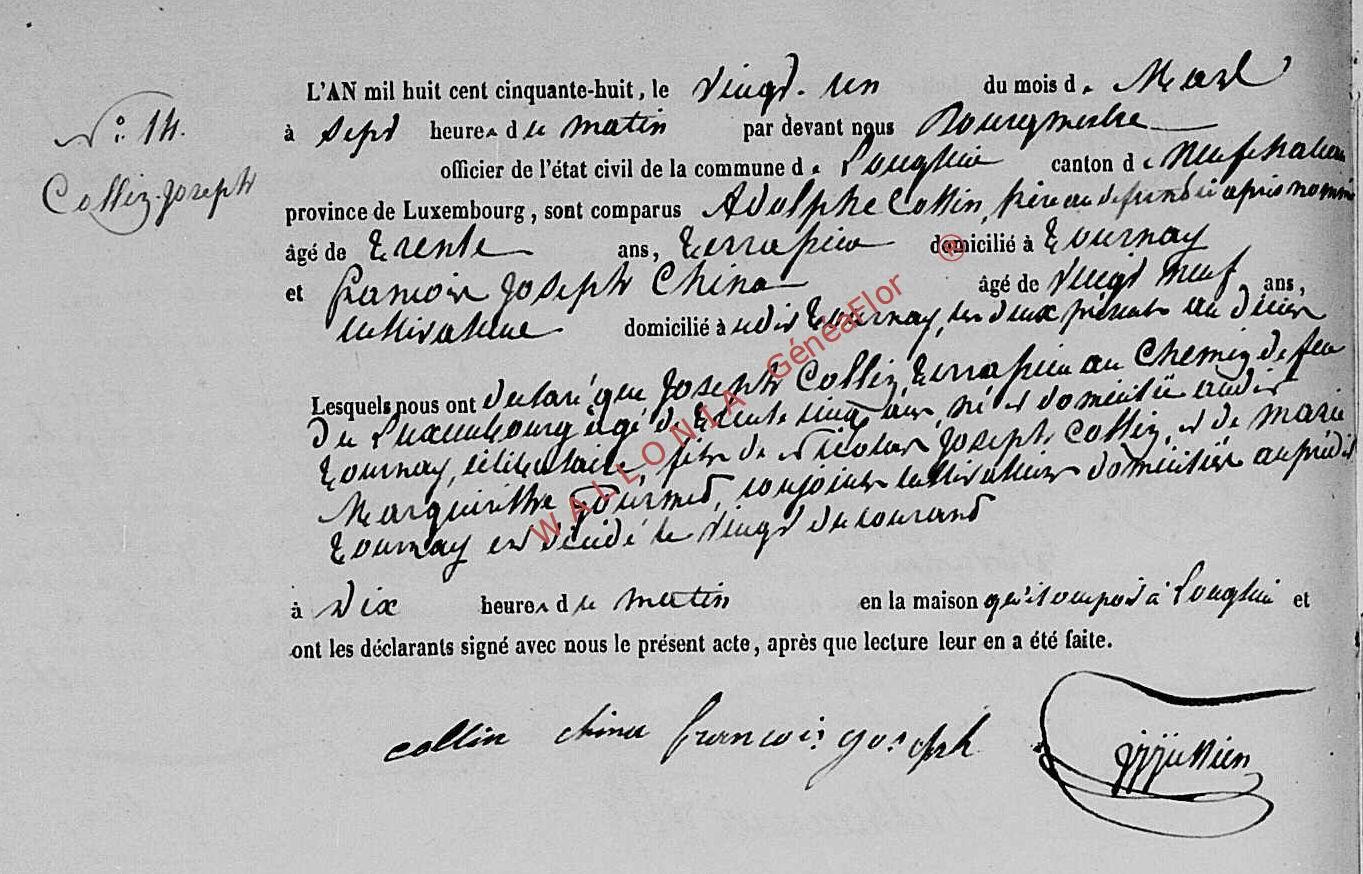 N° 14.
Collin Joseph
L'AN mil huit cent cinquante-huit, le vingt un du mois de Mars
à Sept heures du matin par devant nous Bourgmestre
officier de l'état civil de la commune de Longlier canton de Neufchateau
province de Luxembourg, sont comparus Adolphe Collin, frère au defunt ci après nommé
âgé de trente ans, terrassier domicilié à Tournay
et François Joseph China âgé de vingt neuf ans,
cultivateur domicilié à udit Tournay, les deux présents au décès
Lesquels nous ont declaré que Joseph Collin, terrassier au Chemin de fer
du Luxembourg agé de trente cinq ans, né et domicilié audit
Tournay, célibataire, fils de Nicolas Joseph Collin, et de marie
Marguerithe conjoints cultivateurs domiciliés au prédit
Tournay est décédé le vingt du courant
à dix heures du matin en la maison qu'il occupoit à Longlier et
ont les déclarants signé avec nous le présent acte, après que lecture leur en a été faite.
collin china françois joseph
WALLONIA GénéaFlor ®